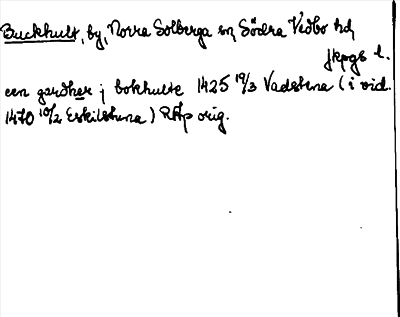 Buckhult, by, Norra Solberga sn, Södra Vedbo hd,
Jkpgs l.
een gardher j bokhulte 1425 19/3 Vadstena (i vid.
1470 10/2 Eskilstuna) RAp orig.